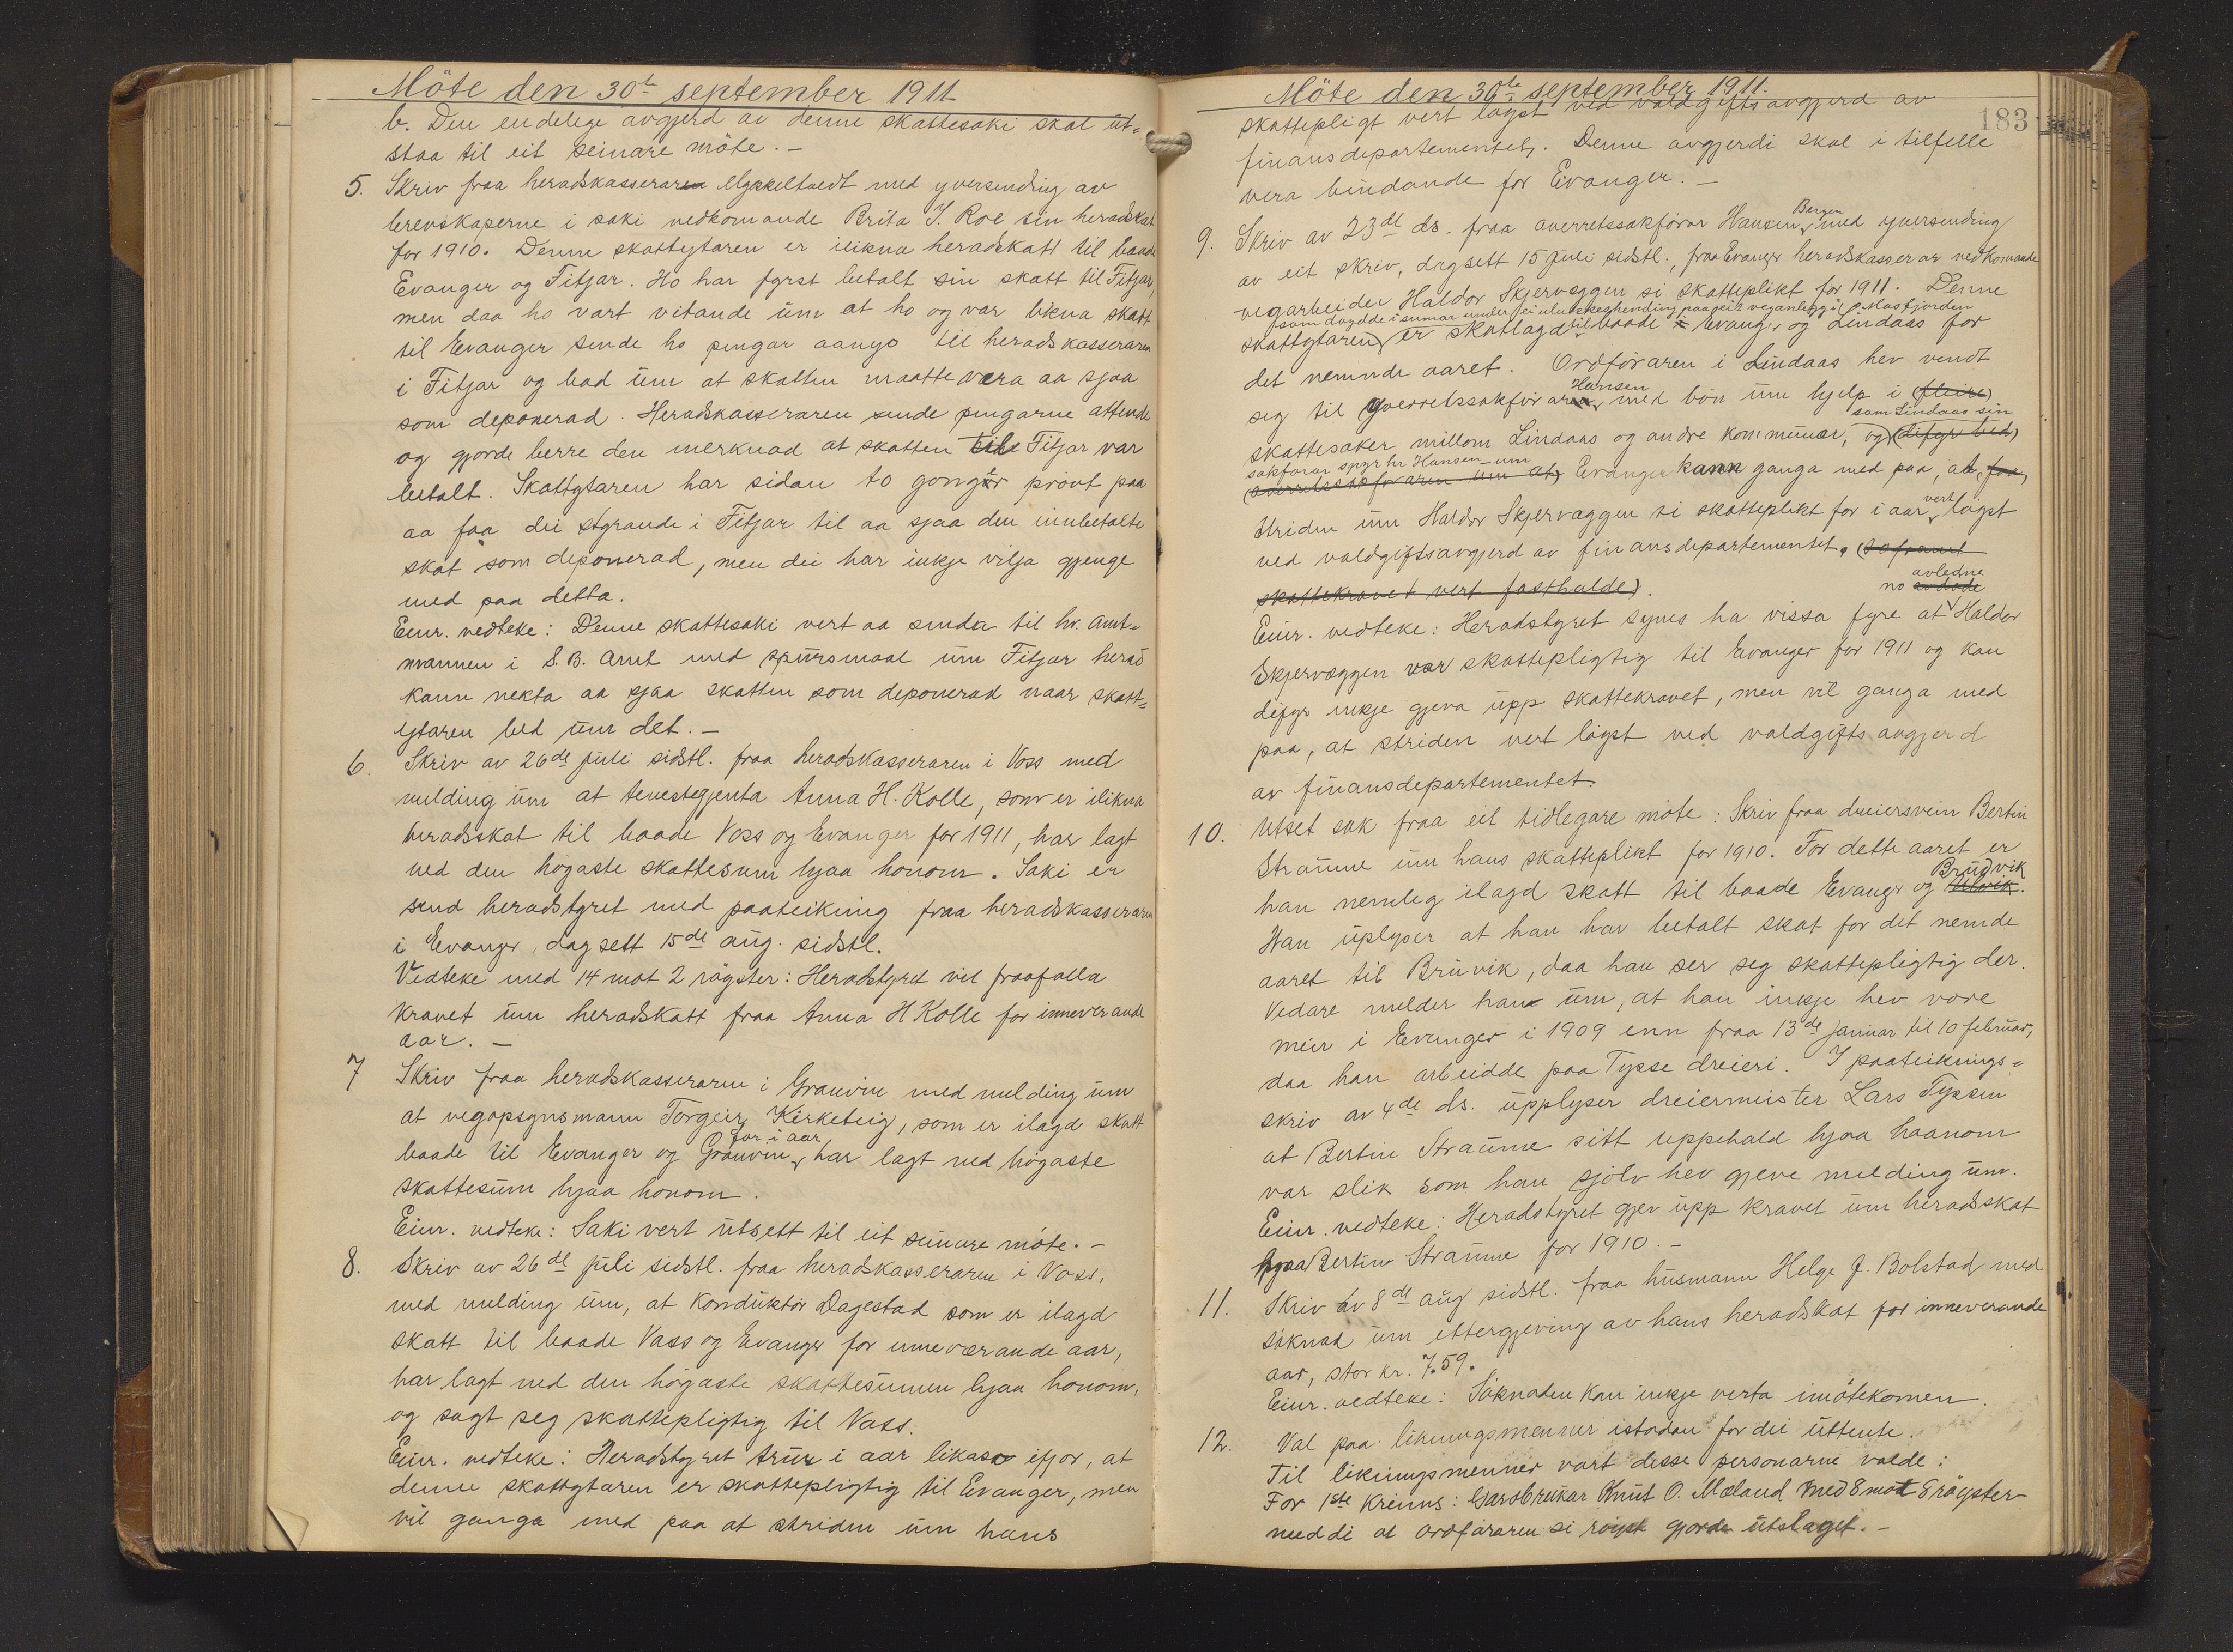 Möte den 30te september 1911.
b. Den endelege avgjerd av denne skattesaki skal ut-
staa til eit seinare möte. -
5. Skriv fraa heradskasseraren Mykkeltvedt med yversending av
brevskaperne i saki vedkomande Brita J. Roe sin heradskat
for 1910. Denne skattytaren er ilikna heradskatt til baade
Evanger og Fitjar. Ho har fyrst betalt sin skatt til Fitjar,
men daa ho vart vitande um at ho og var likna skatt
til Evanger sende ho pengar aanyo til heradskasseraren
i Fitjar og bad um at skatten maatte vera aa sjaa
som deponerad. Heradskasseraren sende pengarne attende
og gjorde berre den merknad at skatten til Fitjar var
betalt. Skattytaren har sidan to gonger prövt paa
aa faa dei styrande i Fitjar til aa sjaa den innbetalte
skat som deponerad, men dei har inkje vilja gjenge
med paa detta.
Einr. vedteke: Denne skattesaki vert aa senda til hr. Amt-
mannen i S. B. Amt med spursmaal um Fitjar herad
kann nekta aa sjaa skatten som deponerad naar skatt-
ytaren bed um det. -
6. Skriv av 26de juli sidstl. fraa heradskasseraren i Voss med
melding um at tenestegjenta Anna H. Kolle, som er ilikna
heradsskat til baade Voss og Evanger for 1911, har lagt
ned den högaste skattesum hjaa honom. Saki er
send heradstyret med paateikning fraa heradskasseraren
i Evanger, dagsett 15de aug. sidstl.
Vedteke med 14 mot 2 röyster: Heradstyret vil fraafalla
kravet um heradskatt fraa Anna H Kolle for inneverande
aar. -
7 Skriv fraa heradskasseraren i Granvin med melding um
at vegopsynsmann Torgeir Kirketeig, som er ilagd skatt
for i aar
baade til Evanger og Granvin, har lagt ned högaste
skattesum hjaa honom.
Einr. vedteke: Saki vert utsett til eit seinare möte. -
8. Skriv av 26de juli sidstl. fraa heradskasseraren i Voss,
med melding um, at konduktör Dagestad som er ilagd
skatt til baade Vass og Evanger for inneværande aar,
har lagt ned den högaste skattesumen hjaa honom,
og sagt seg skattepligtig til Vass.
Einr. vedteke: Heradstyret trur i aar likaso ifjor, at
denne skattytaren er skattepligtig til Evanger, men
vil ganga med paa at striden um hans
Möte den 30te september 1911.
183
skattepligt vert löyst ved valdgiftsavgjerd av
finansdepartementet. Denne avgjerdi skal i tilfelle
vera bindande for Evanger. -
Bergen
9. Skriv av 23de ds. fraa overretssakförar Hansen, med yversending
av eit skriv, dagsett 15 juli sidstl., fraa Evanger heradskasserar vedkomande
vegarbeider Haldor Skjerveggen si skatteplikt for 1911. Denne
som döydde i sumar under ei ulukkeshending paa eit veganlegg i Masfjorden
skattytaren er skatlagd til baade i Evanger og Lindaas for
det nemnde aaret. Ordföraren i Lindaas hev vendt
Hansen
seg til yverretssakföraren, med bön um hjelp i (fleire)
som Lindaas sin
skattesaker millom Lindaas og andre kommunar, og (difyr bed)
sakförar spyr hr Hansen um
(overretssakföraren um at) Evanger kann ganga med paa, at, faa,
vert
striden um Haldor Skjerveggen si skatteplikt for i aar löyst
ved valdgiftsavgjerd av finansdepartementet. (soframt
skattekravet vert fasthalde).
avledne
no avdöde
Einr. vedteke: Heradstyret synes ha vissa fyre at Haldor
Skjerveggen var skattepligtig til Evanger for 1911 og kan
difyr inkje gjeva upp skattekravet, men vil ganga med
paa, at striden vert löyst ved valdgifts avgjerd
av finansdepartementet.
10. Utset sak fraa eit tidlegare möte: Skriv fraa dreiersvein Bertin
Straume um hans skatteplikt for 1910. For dette aaret er
Brudvik
han nemleg ilagd skatt til baade Evanger og Ulvik.
Han uplyser at han har betalt skat for det nemde
aaret til Bruvik, daa han ser seg skattepligtig der.
Vedare melder han um, at han inkje hev vore
meir i Evanger i 1909 enn fraa 13de januar til 10 februar,
daa han arbeidde paa Tysse dreieri. I paateiknings-
skriv av 4de ds. upplyser dreiermeister Lars Tyssen
at Bertin Straume sitt uppehald hjaa haanom
var slik som han sjölv hev gjeve melding um.
Einr. vedteke: Heradstyret gjev upp kravet um heradsskat
hjaa Bertin Straume for 1910. -
11. Skriv av 8de aug sidstl. fraa husmann Helge J. Bolstad med
söknad um ettergjeving av hans heradskat for inneverande
aar, stor kr. 7.59.
Einr. vedteke: Söknaden kan inkje verta imötekomen.
12. Val paa likningsmenner istadan for dei uttente.
Til likningsmenner vart desse personarne valde:
For 1ste Kreins: Gardbrukar Knut O. Mæland med 8 mot 8 röyster
med di at ordföraren si röyst gjorde utslaget. -